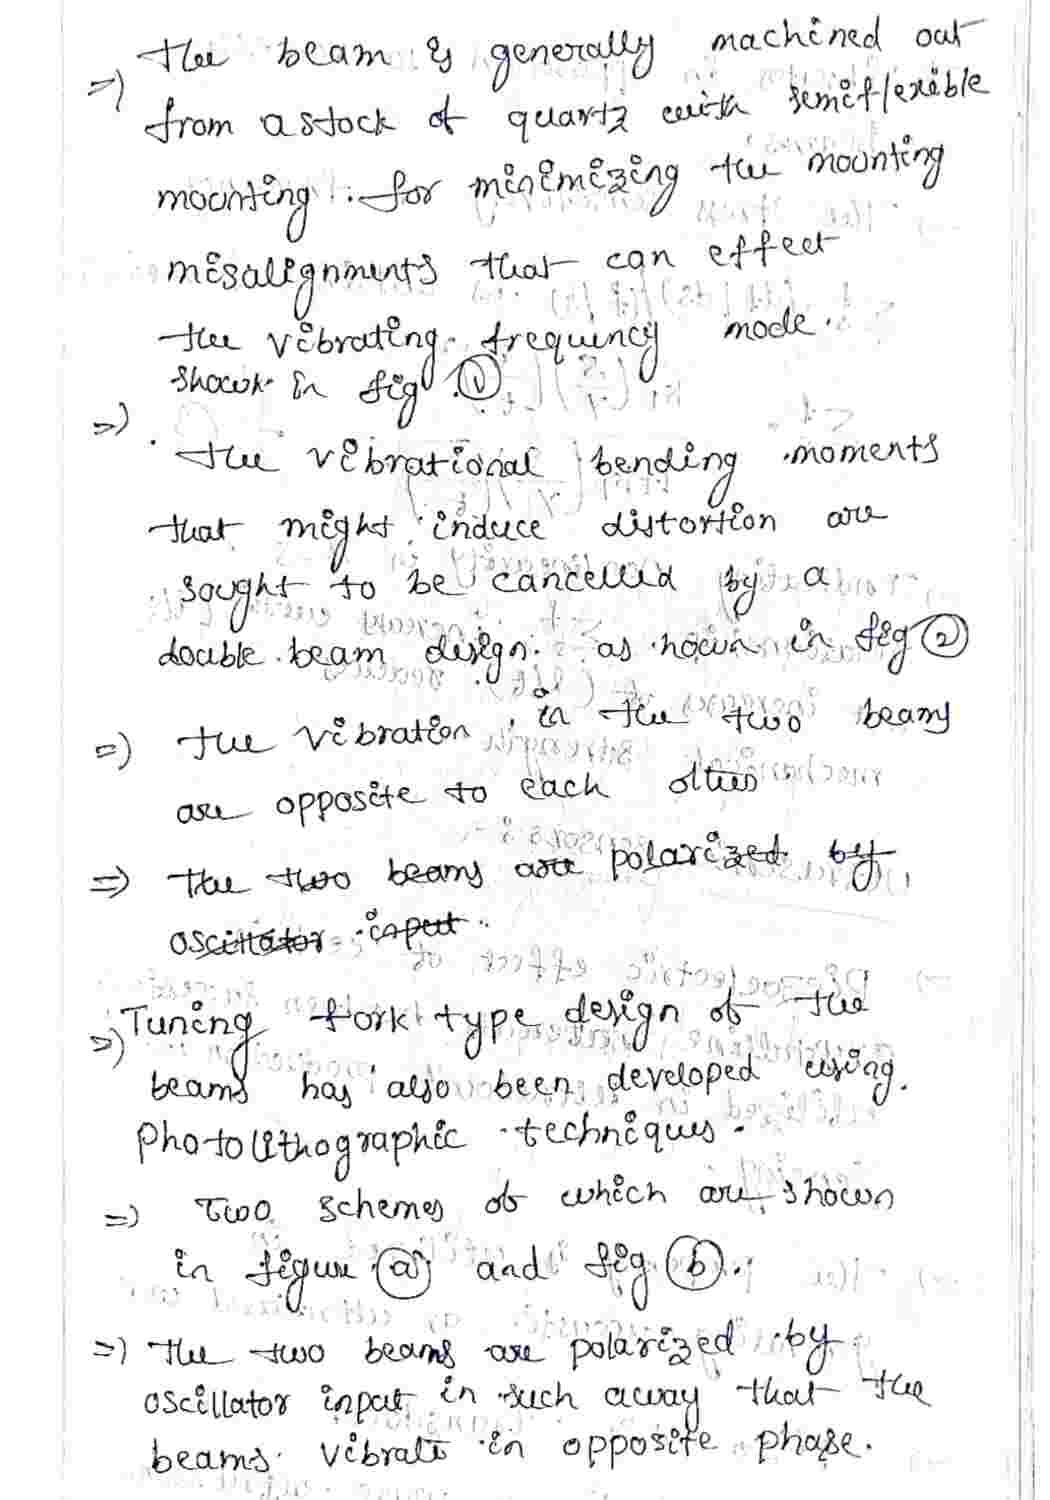 =) The beam is generally machined out
from a stock of quartz with semiflexible
mounting. for minimizing the mounting
misalignments that can effect
the vibrating frequency mode.
shown in fig ①
=) The vibrational bending moments
that might induce distortion are
sought to be cancelled by a
double beam design. as hown in fig ②
=) The vibration in the two beams
are opposite to each other
=) The two beams are polarized by
oscillator input.
=) Tuning fork type design of the
beams has also been developed using
Photolithographic techniques.
=) Two schemes of which are shown
in figure ⓐ and fig ⓑ.
=) The two beams are polarized by
oscillator input in such away that the
beams vibrate in opposite phase.